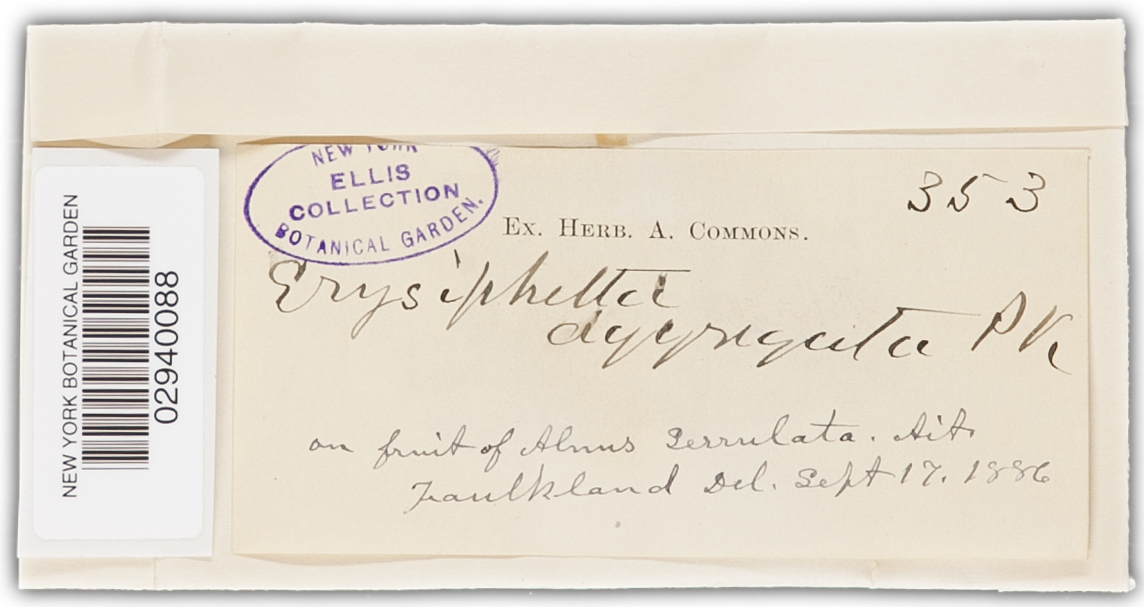 NEW YORK
ELLIS
COLLECTION
BOTANICAL GARDEN.
353
Ex. Herb. A. Commons.
Erysiphella
aggregata PK
on fruit of Alnus Serrulata. Ait.
Faulkland Del. Sept 17. 1886
NEW YORK BOTANICAL GARDEN
02940088